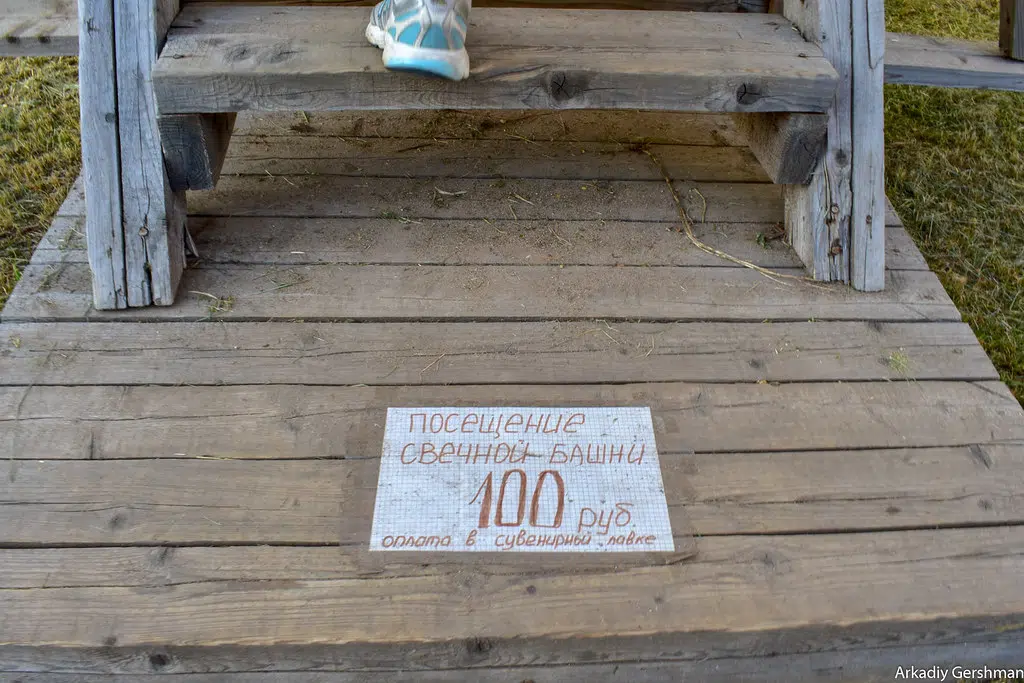 ПОСЕЩЕНИЕ
СВЕЧНОЙ БАШНИ
100 руб.
оплата в сувенирный лавке
Arkadiy Gershman